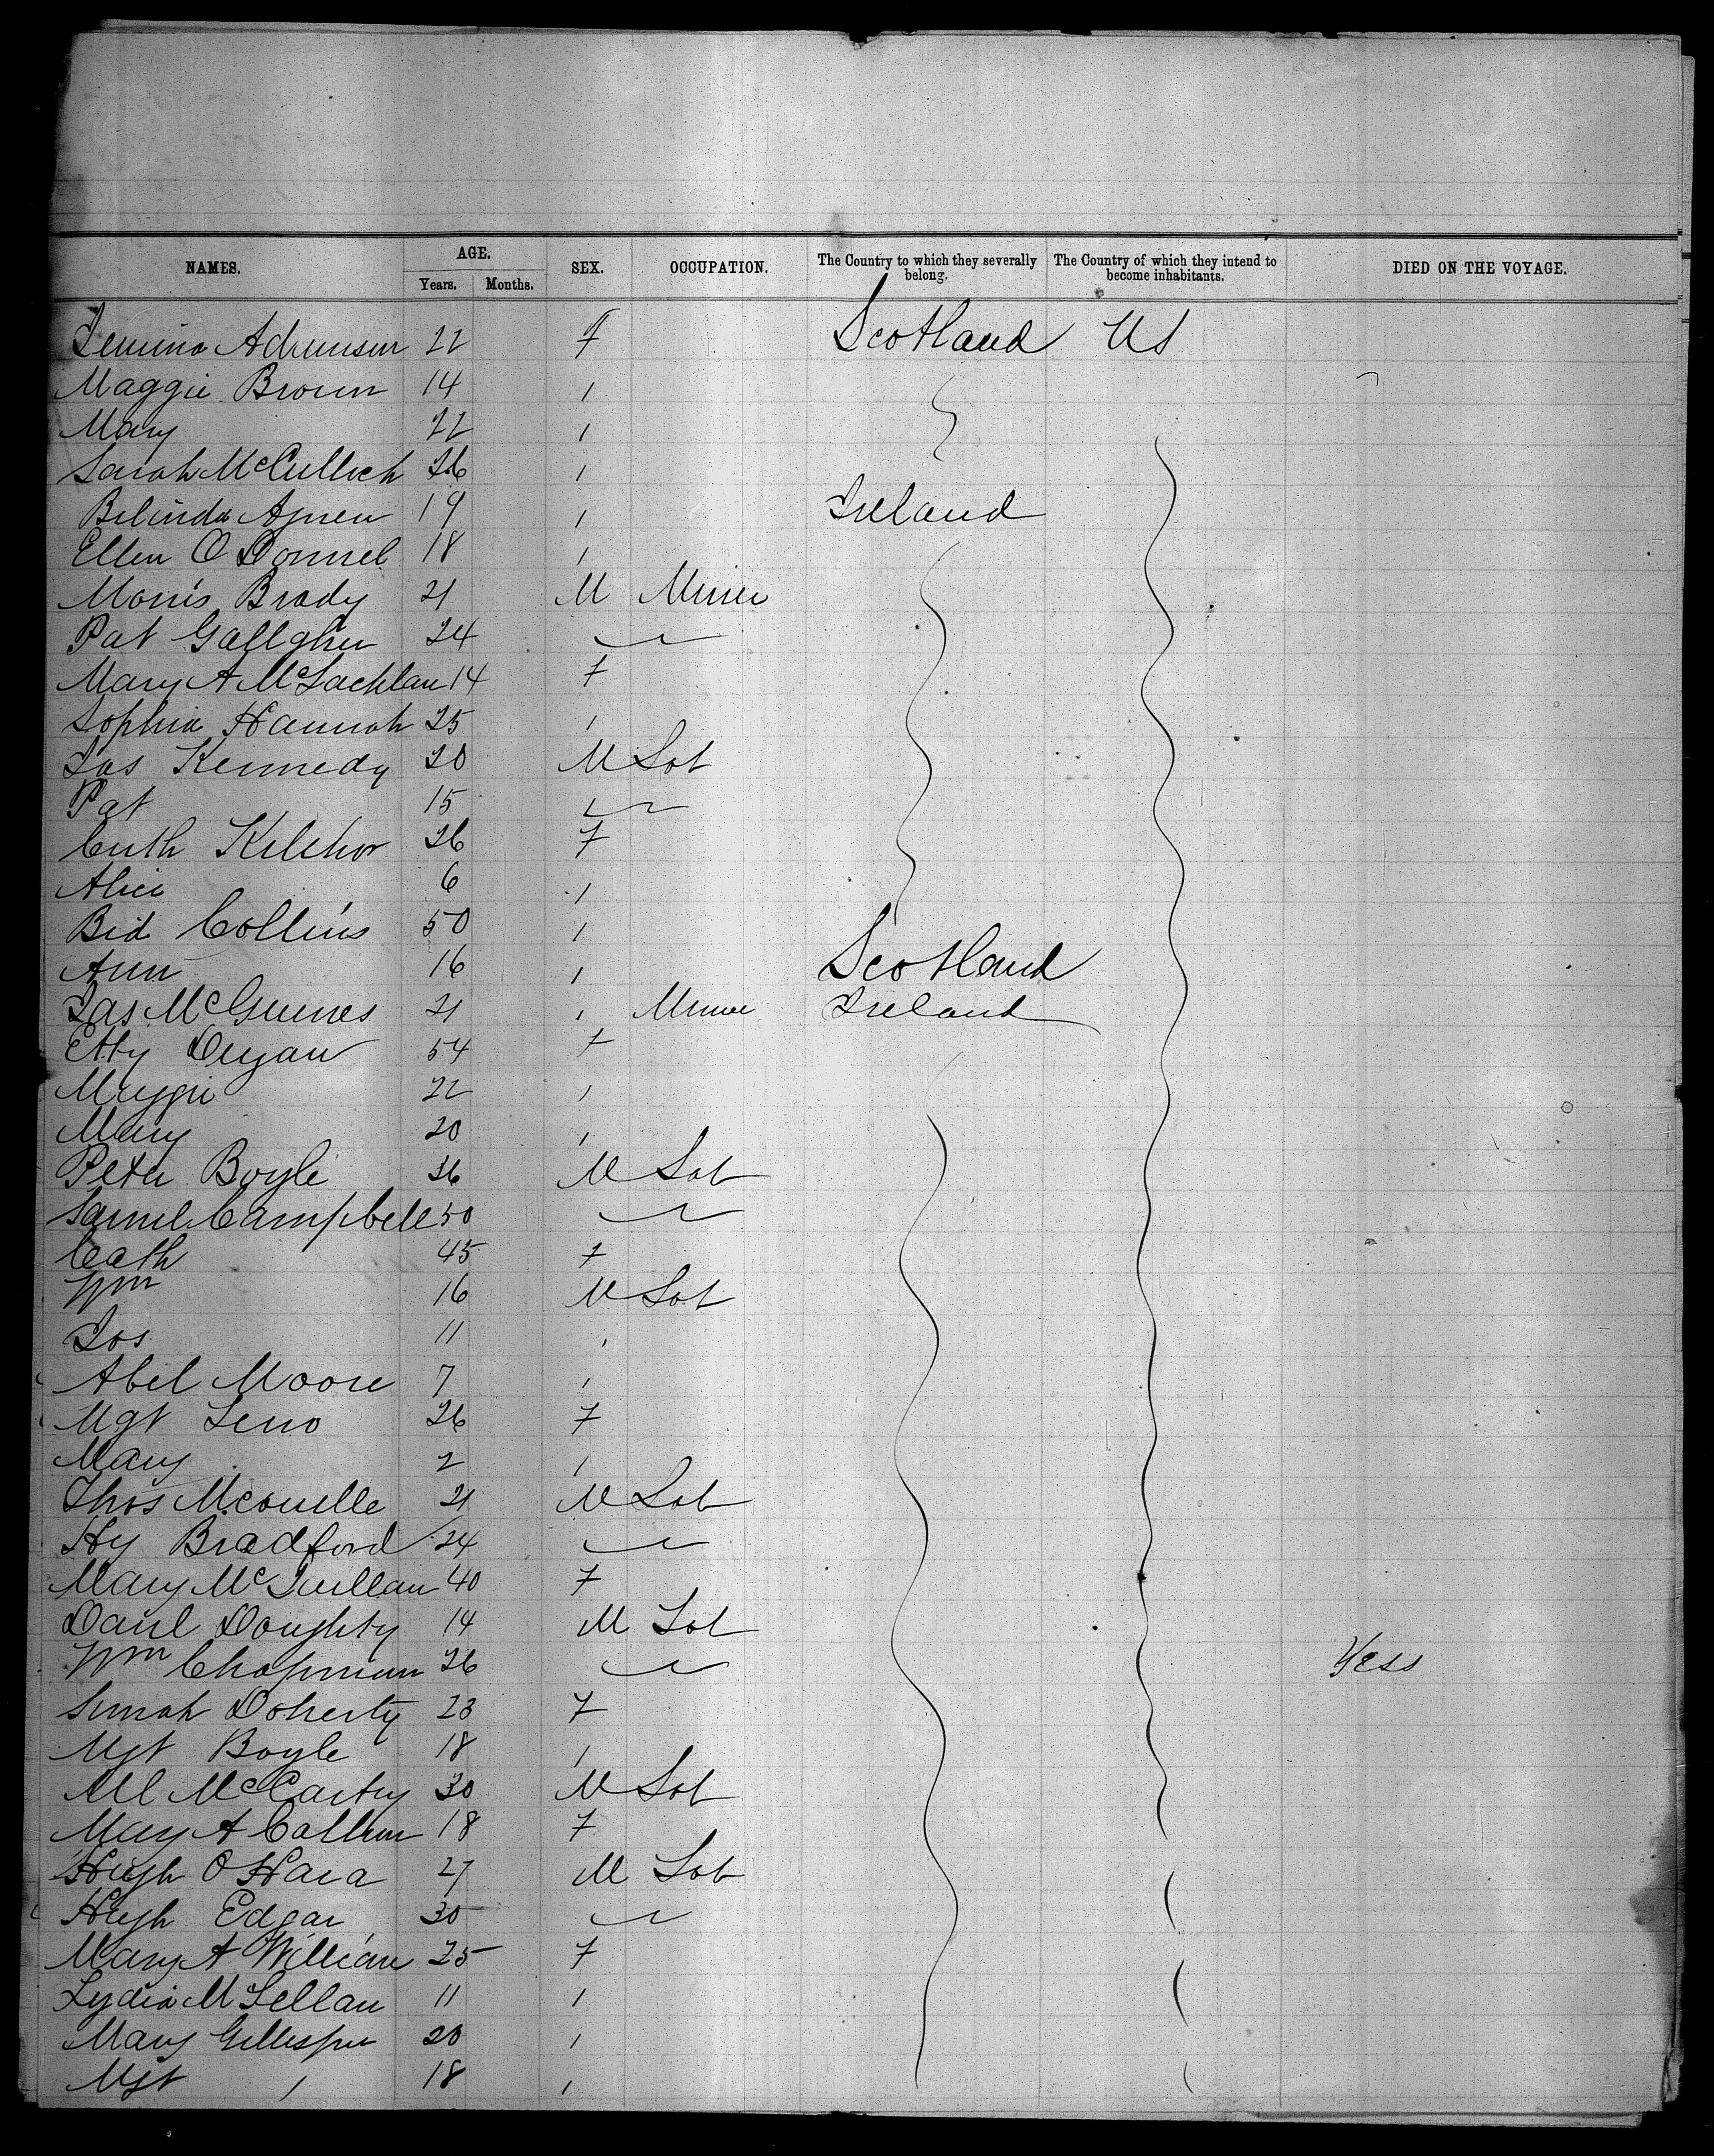 NAMES. AGE. SEX. OCCUPATION. The Country to which they severally belong. The Country of which they intend to become inhabitants. DIED ON THE VOYAGE.
Years. Months.
22 F Scotland US
Maggie Brown 14 "
Mary 22 "
Sarah McCulloch 26 "
Belinda Agnew 19 " Ireland
Ellen O Donnel 18 "
Morris Brady 21 M Miner
Pat Gallgher 24 "
Mary A McLachlan 14 F
Sophia Hannah 25 "
Jas Kennedy 20 M Lab
Pat 15 "
26 F
Alice 6 "
Bid Collins 50 "
Ann 16 " Scotland
Jas McGuines 21 " Miner Ireland
Etty 54 F
Maggie 22 "
Mary 20 "
Peter Boyle 36 M Lab
Saml Campbell 50 "
Cath 45 F
Wm 16 M Lab
Jos 11 "
Abel Moore 7 "
Mgt 26 F
Mary 2 "
Thos 21 M Lab
Hy Bradford 24 "
Mary 40 F
Danl Doughty 14 M Lab
Wm Chapman 26 " Yess
Doherty 23 F
Mgt Boyle 18 "
Ml McCarty 30 M Lab
Mary A 18 F
Hugh O Hara 27 M Lab
Hugh Edgar 30 "
Mary A William 25 F
Lydia M Lellan 11 "
Mary Gillespie 20 "
Mgt " 18 "